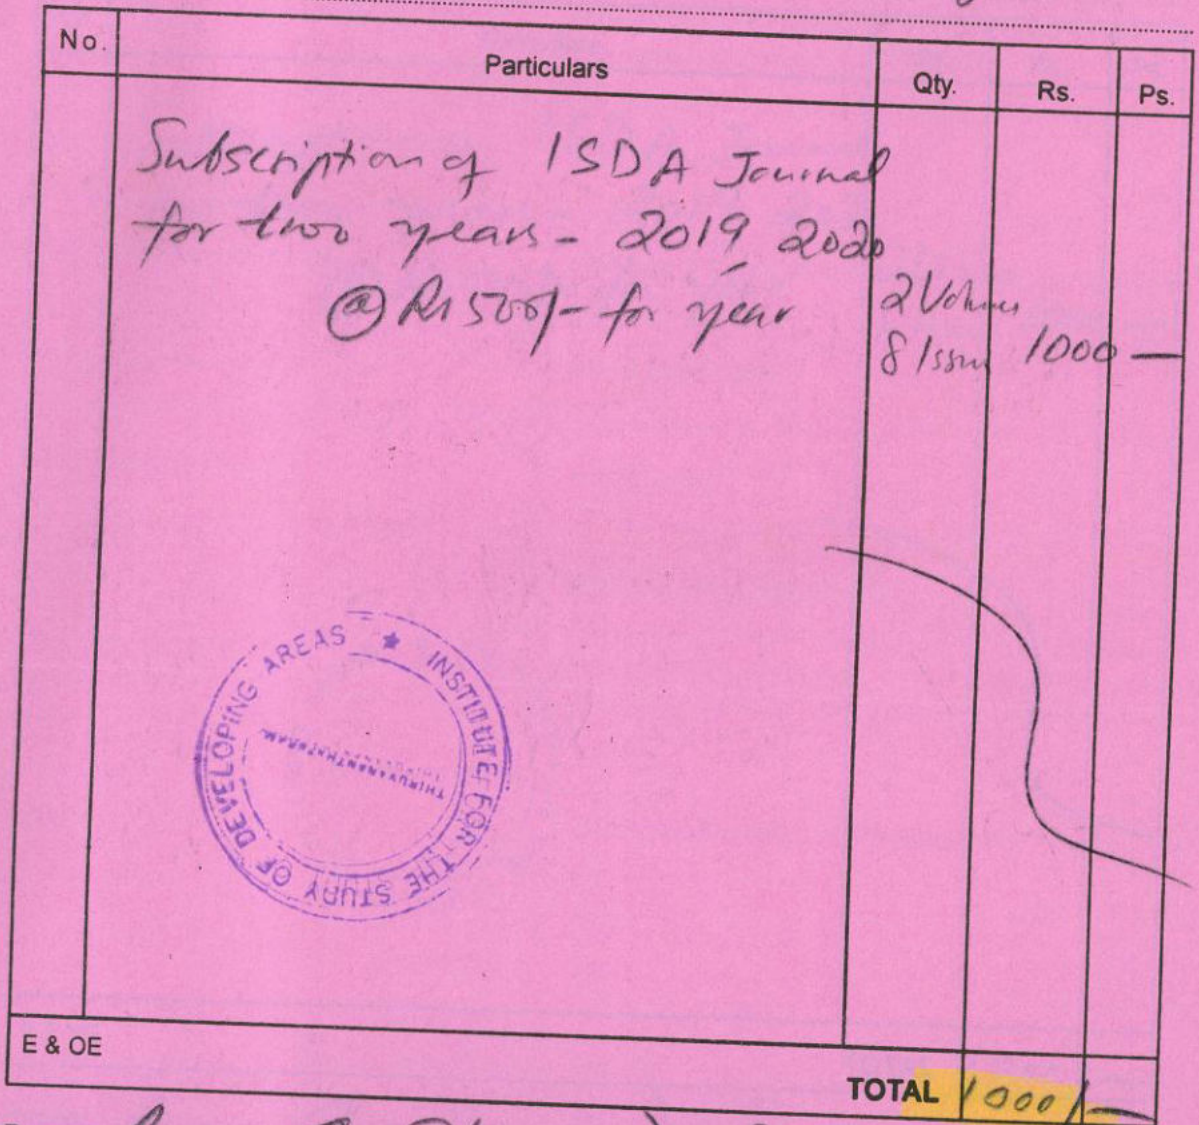 No. Particulars Qty. Rs. Ps.
Subscription of ISDA Journal
for two years - 2019, 2020
@ Rs 500/- for year 2 Volumes
8 Issues 1000 —
INSTITUTE FOR THE STUDY OF DEVELOPING AREAS ★
THIRUVANANTHAPURAM
E & OE
TOTAL 1000/—